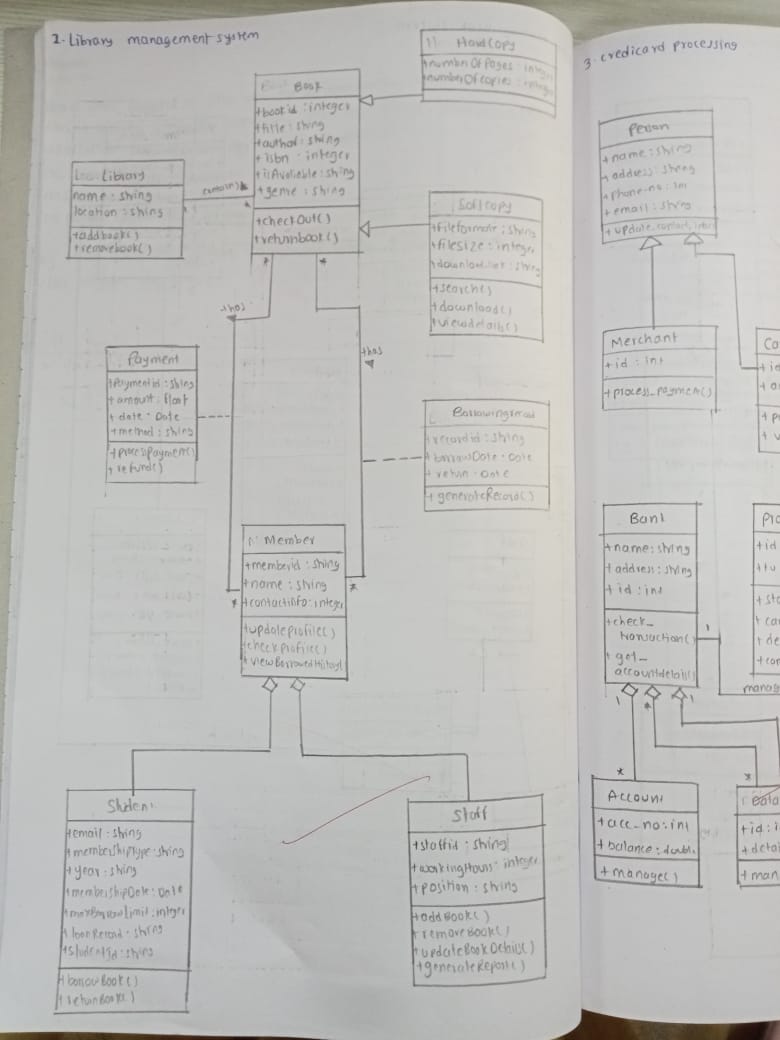 2. Library management system
HardCopy
+numberOfPages : integer
+numberOfCopies : integer
Book
+bookid : integer
+title : string
+author : string
+isbn : integer
+isAvaliable : string
+genre : string
+checkOut()
+returnbook()
Library
name : string
location : string
+addbook()
+removebook()
contains
Softcopy
+fileformate : string
+filesize : integer
+downloadlink : string
+search()
+download()
+viewdetails()
*
*
+has
+has
Payment
+Paymentid : string
+amount : float
+date : Date
+method : string
+processPayment()
+refund()
Borrowingrecord
+recordid : string
+borrowDate : Date
+return : Date
+generateRecord()
Member
+memberid : string
+name : string
+contactinfo : integer
*
*
+updateprofile()
+checkprofile()
+viewBorrowedHistory()
Student
+email : string
+membershipType : string
+year : string
+membershipDate : Date
+maxBorrowLimit : integer
+loanRecord : string
+studentId : string
+borrowBook()
+returnBook()
Staff
+staffid : string
+workingHours : integer
+position : string
+addBook()
+removeBook()
+updateBookDetails()
+generateReport()
3. credicard processing
Person
+name : string
+address : string
+phone-no : int
+email : string
+update_contact_info()
Merchant
+id : int
+process_payment()
Ca
+id
+a
+p
+v
Bank
+name : string
+address : string
+id : int
+check_
transaction()
+get_
accountdetail()
1
Pro
+id
+tu
+sta
+ca
+de
+con
manag
1
*
1
*
*
Account
+acc_no : int
+balance : double
+manage()
+id : i
+detai
+man